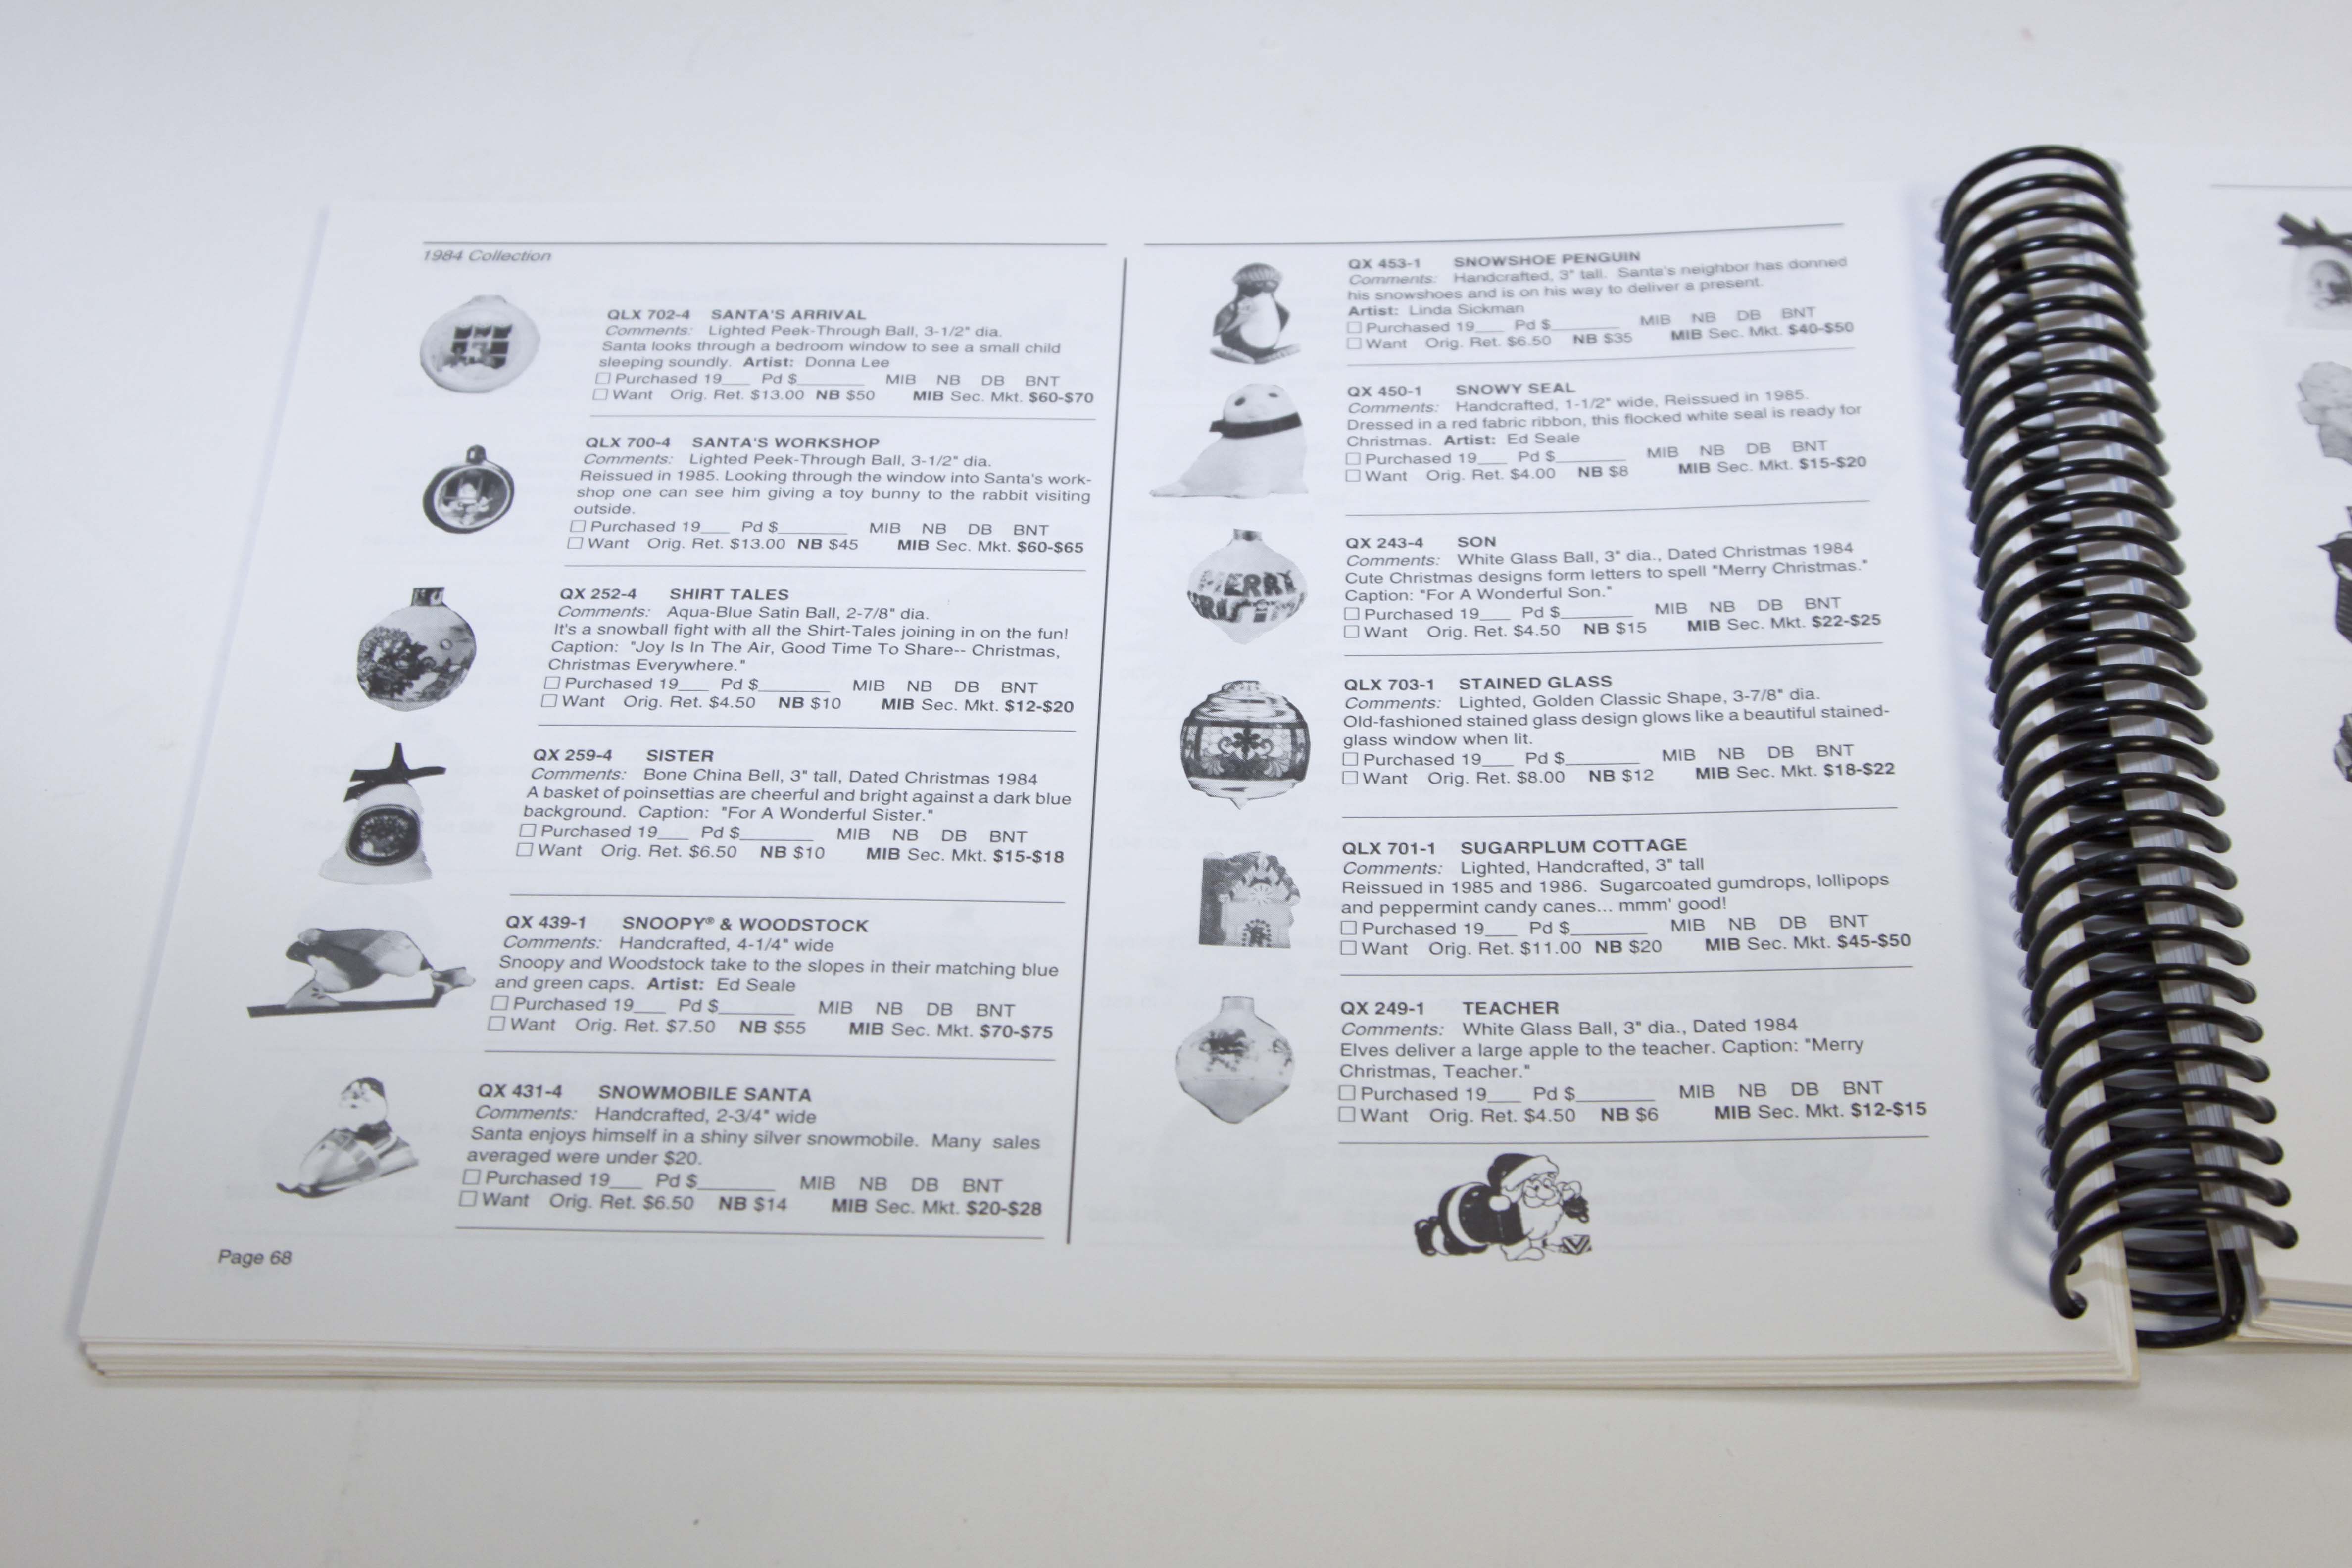 1984 Collection
QLX 702-4 SANTA'S ARRIVAL
Comments: Lighted Peek-Through Ball, 3-1/2" dia.
Santa looks through a bedroom window to see a small child
sleeping soundly. Artist: Donna Lee
☐ Purchased 19___ Pd $________ MIB NB DB BNT
☐ Want Orig. Ret. $13.00 NB $50 MIB Sec. Mkt. $60-$70
QLX 700-4 SANTA'S WORKSHOP
Comments: Lighted Peek-Through Ball, 3-1/2" dia.
Reissued in 1985. Looking through the window into Santa's work-
shop one can see him giving a toy bunny to the rabbit visiting
outside.
☐ Purchased 19___ Pd $________ MIB NB DB BNT
☐ Want Orig. Ret. $13.00 NB $45 MIB Sec. Mkt. $60-$65
QX 252-4 SHIRT TALES
Comments: Aqua-Blue Satin Ball, 2-7/8" dia.
It's a snowball fight with all the Shirt-Tales joining in on the fun!
Caption: "Joy Is In The Air, Good Time To Share-- Christmas,
Christmas Everywhere."
☐ Purchased 19___ Pd $________ MIB NB DB BNT
☐ Want Orig. Ret. $4.50 NB $10 MIB Sec. Mkt. $12-$20
QX 259-4 SISTER
Comments: Bone China Bell, 3" tall, Dated Christmas 1984
A basket of poinsettias are cheerful and bright against a dark blue
background. Caption: "For A Wonderful Sister."
☐ Purchased 19___ Pd $________ MIB NB DB BNT
☐ Want Orig. Ret. $6.50 NB $10 MIB Sec. Mkt. $15-$18
QX 439-1 SNOOPY® & WOODSTOCK
Comments: Handcrafted, 4-1/4" wide
Snoopy and Woodstock take to the slopes in their matching blue
and green caps. Artist: Ed Seale
☐ Purchased 19___ Pd $________ MIB NB DB BNT
☐ Want Orig. Ret. $7.50 NB $55 MIB Sec. Mkt. $70-$75
QX 431-4 SNOWMOBILE SANTA
Comments: Handcrafted, 2-3/4" wide
Santa enjoys himself in a shiny silver snowmobile. Many sales
averaged were under $20.
☐ Purchased 19___ Pd $________ MIB NB DB BNT
☐ Want Orig. Ret. $6.50 NB $14 MIB Sec. Mkt. $20-$28
Page 68
QX 453-1 SNOWSHOE PENGUIN
Comments: Handcrafted, 3" tall. Santa's neighbor has donned
his snowshoes and is on his way to deliver a present.
Artist: Linda Sickman
☐ Purchased 19___ Pd $________ MIB NB DB BNT
☐ Want Orig. Ret. $6.50 NB $35 MIB Sec. Mkt. $40-$50
QX 450-1 SNOWY SEAL
Comments: Handcrafted, 1-1/2" wide, Reissued in 1985.
Dressed in a red fabric ribbon, this flocked white seal is ready for
Christmas. Artist: Ed Seale
☐ Purchased 19___ Pd $________ MIB NB DB BNT
☐ Want Orig. Ret. $4.00 NB $8 MIB Sec. Mkt. $15-$20
MERRY
QX 243-4 SON
Comments: White Glass Ball, 3" dia., Dated Christmas 1984
Cute Christmas designs form letters to spell "Merry Christmas."
Caption: "For A Wonderful Son."
☐ Purchased 19___ Pd $________ MIB NB DB BNT
☐ Want Orig. Ret. $4.50 NB $15 MIB Sec. Mkt. $22-$25
QLX 703-1 STAINED GLASS
Comments: Lighted, Golden Classic Shape, 3-7/8" dia.
Old-fashioned stained glass design glows like a beautiful stained-
glass window when lit.
☐ Purchased 19___ Pd $________ MIB NB DB BNT
☐ Want Orig. Ret. $8.00 NB $12 MIB Sec. Mkt. $18-$22
QLX 701-1 SUGARPLUM COTTAGE
Comments: Lighted, Handcrafted, 3" tall
Reissued in 1985 and 1986. Sugarcoated gumdrops, lollipops
and peppermint candy canes... mmm' good!
☐ Purchased 19___ Pd $________ MIB NB DB BNT
☐ Want Orig. Ret. $11.00 NB $20 MIB Sec. Mkt. $45-$50
QX 249-1 TEACHER
Comments: White Glass Ball, 3" dia., Dated 1984
Elves deliver a large apple to the teacher. Caption: "Merry
Christmas, Teacher."
☐ Purchased 19___ Pd $________ MIB NB DB BNT
☐ Want Orig. Ret. $4.50 NB $6 MIB Sec. Mkt. $12-$15